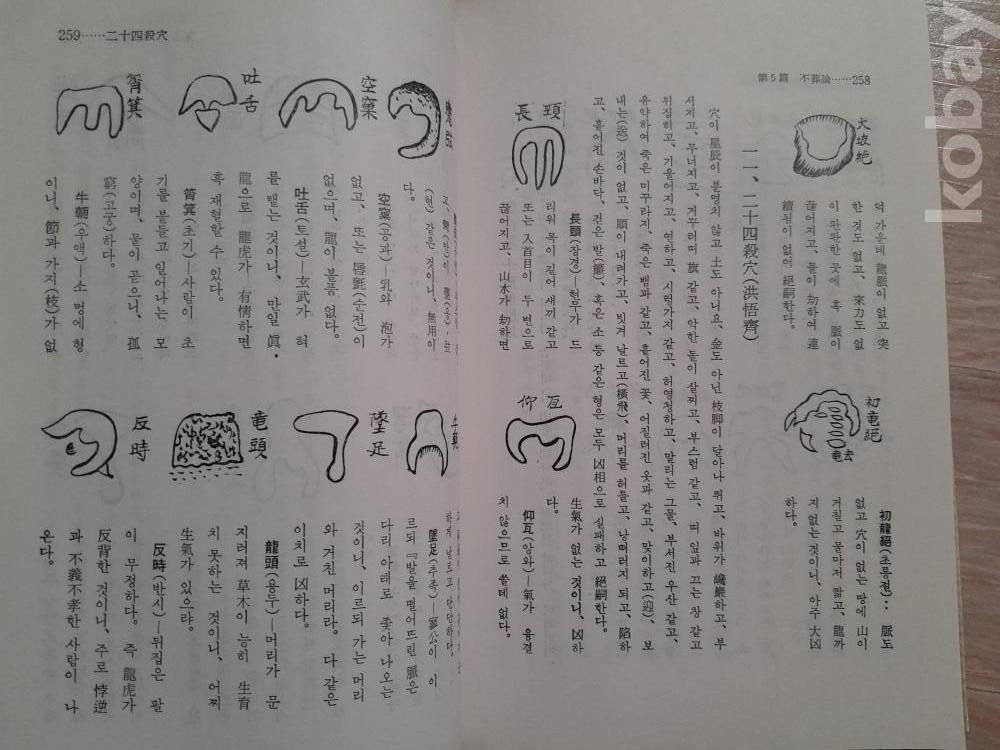 第5篇 不葬論……258
大坡絶
덕 가운데 龍脈이 없고 突
한 것도 없고, 來力도 없
이 판판한 곳에 혹 脈이
끊어지고, 돌이 刧하여 連
續됨이 없어 絕嗣한다.
初竜絕
竜去
初龍絕(초룡절): 脈도
없고 穴이 없는 땅에 山이
거칠고 물마저 짧고, 龍까
지 없는 것이니, 아주 大凶
하다.
一一、二十四殺穴(洪悟齊)
穴이 星辰이 분명치 않고 土도 아니요, 金도 아닌 枝脚이 달아나 뛰고, 바위가 巉巖하고, 부
서지고, 무너지고, 거꾸러며 旗 같고, 악한 돌이 살찌고, 부스럼 같고, 떠 잎과 끄는 창 같고
뒤집히고, 기울어지고, 연하고, 시렁가지 같고, 허영청하고, 말리는 그물, 부서진 우산 같고,
유약하여 죽은 미꾸라지, 죽은 뱀과 같고, 흩어진 꽃, 어질러진 옷과 같고, 맞이하고(迎), 보
내는(送) 것이 없고, 順이 내려가고, 빗겨 날르고(橫飛), 머리를 허틀고, 낭떠러지 되고, 陷하
고, 흩어진 손바닥, 걷은 발(簾), 혹은 소 등 같은 형은 모두 凶相으로 실패하고 絕嗣한다.
長頸
長頸(장경)—현무가 드
리워 목이 길어 새끼 같고
또는 入首目이 두 변으로
끊어지고、山水가 刧하면
仰瓦
生氣가 없는 것이니, 凶하
다.
仰瓦(앙와)—氣가 융결
치 않으므로 쓸데 없다.
259……二十四殺穴
(현) 같은 것이니, 無用이
다.
空窠
空窠(공과)—乳와 泡가
없고、또는 唇氈(순전)이
없으며、龍이 불품 없다.
吐舌
吐舌(토설)—玄武가 혀
를 뱉는 것이니, 만일 眞·
龍으로 龍虎가 有情하면
혹 재혈할 수 있다.
筲箕
筲箕(초기)—사람이 초
기를 붙들고 일어나는 모
양이며、물이 곧으니、孤
窮(고궁)하다.
牛軛(우액)—소 멍에 형
이니、節과 가지(枝)가 없
하게 날르고 단단하다.
墜足
墜足(추족)—寥公이 이
르되『발을 떨어뜨린 脈은
다리 아래로 좇아 나오는
것이니, 이르되 가는 머리
와 거친 머리라. 다 같은
이치로 凶하다.
竜頭
龍頭(용두)—머리가 문
지러져 草木이 능히 生育
치 못하는 것이니、어찌
生氣가 있으랴.
反時
反時(반시)—뒤집은 팔
이 무정하다. 즉 龍虎가
反背한 것이니、주로 悖逆
과 不義不孝한 사람이 나
온다.
kobay